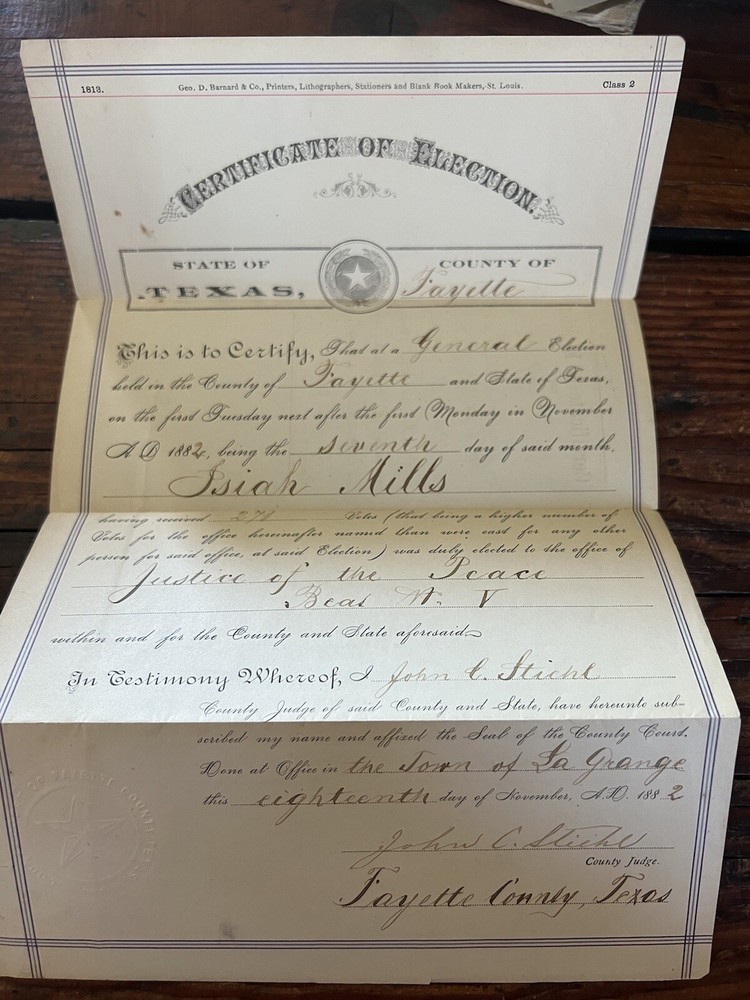 1813.
Geo. D. Barnard & Co., Printers, Lithographers, Stationers and Blank Book Makers, St. Louis.
Class 2
CERTIFICATE OF ELECTION.
STATE OF
TEXAS,
COUNTY OF
Fayette
This is to Certify, That at a General Election
held in the County of Fayette and State of Texas,
on the first Tuesday next after the first Monday in November
A.D. 1882, being the seventh day of said month,
Isiah Mills
having received Votes (that being a higher number of
Votes for the office hereinafter named than were cast for any other
person for said office, at said Election) was duly elected to the office of
Justice of the Peace
Beat V
within and for the County and State aforesaid
In Testimony Whereof, I John C. Stiehl
County Judge of said County and State, have hereunto sub-
scribed my name and affixed the Seal of the County Court.
Done at Office in the Town of La Grange
this eighteenth day of November, A.D. 1882
John C. Stiehl
County Judge.
Fayette County, Texas